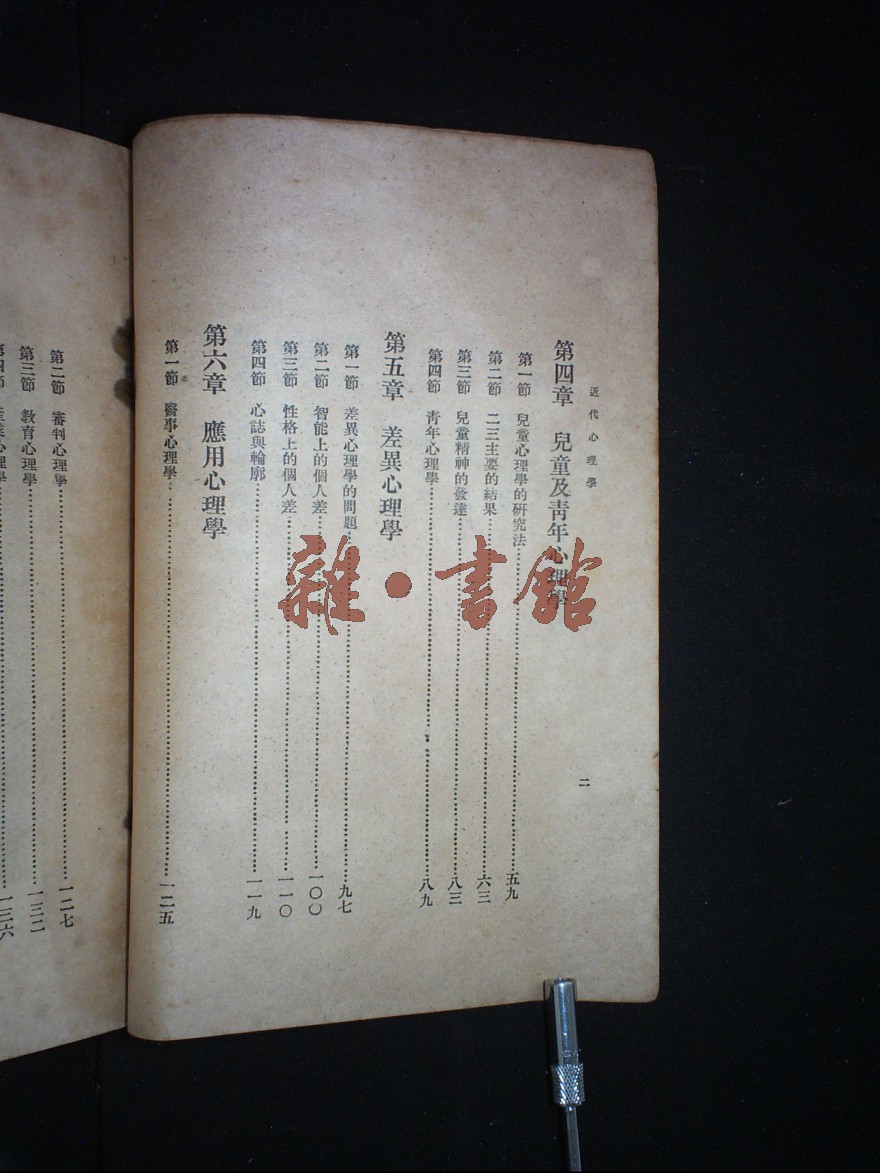 近代心理學
二
第四章 兒童及青年心理學
第一節 兒童心理學的研究法……五九
第二節 二三主要的結果……六三
第三節 兒童精神的發達……八三
第四節 青年心理學……八九
第五章 差異心理學
第一節 差異心理學的問題……九七
第二節 智能上的個人差……一〇〇
第三節 性格上的個人差……一一〇
第四節 心誌與輪廓……一一九
第六章 應用心理學
第一節 醫事心理學……一二五
第二節 審判心理學……一二七
第三節 教育心理學……一三二
第四節 產業心理學……一三六
雜·書館